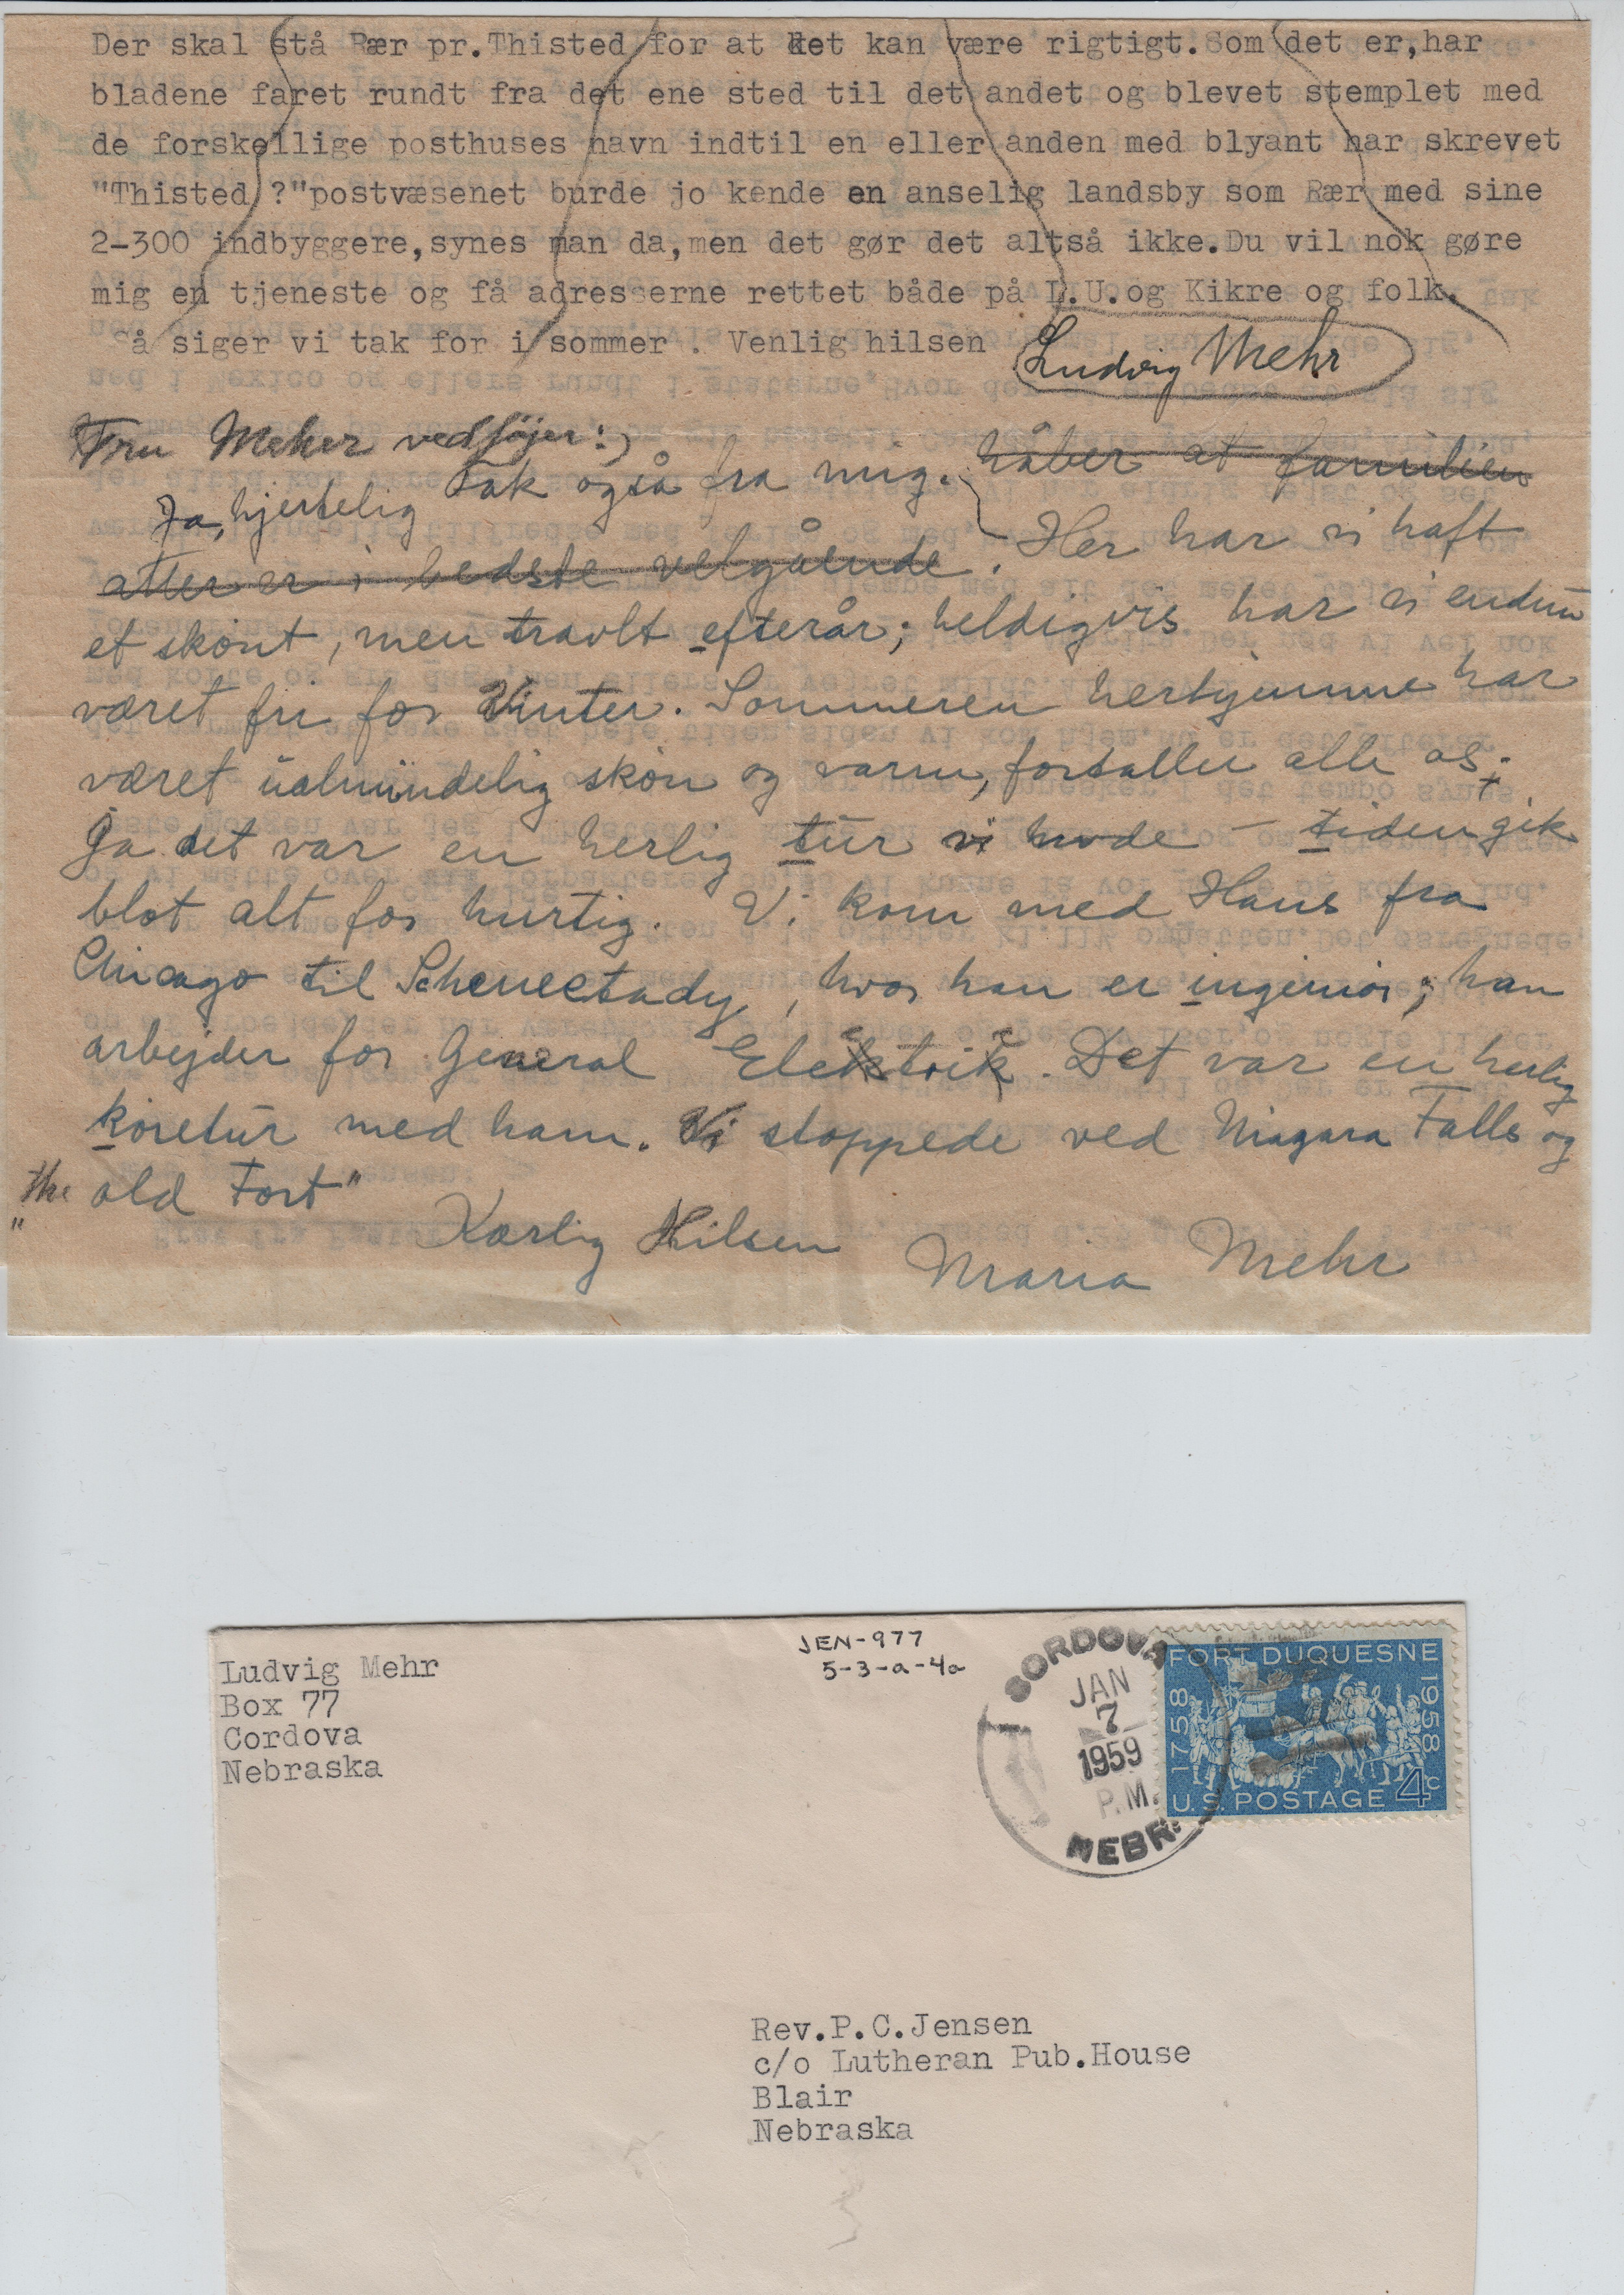 Der skal stå Rær pr.Thisted for at det kan være rigtigt.Som det er,har
bladene faret rundt fra det ene sted til det andet og blevet stemplet med
de forskellige posthuses navn indtil en eller anden med blyant har skrevet
"Thisted ?"postvæsenet burde jo kende en anselig landsby som Rær med sine
2-300 indbyggere,synes man da,men det gør det altså ikke.Du vil nok gøre
mig en tjeneste og få adresserne rettet både på L.U.og Kikre og folk.
Så siger vi tak for i sommer . Venlig hilsen Ludvig Mehr
Fru Meher vedföjer:)
Ja, hjertelig Tak også fra mig. håber at familien
atter er i bedste velgående. Her har vi haft
et skönt, men travlt efterår; heldigvis har vi endnu
været fri for Vinter. Sommeren herhjemme har
været ualmindelig skön og varm, fortæller alle os.
Ja det var en herlig tur vi havde - tiden gik
blot alt for hurtig. Vi kom med Hans fra
Chicago til Schenectady, hvor han er ingeniör; han
arbejder for General Elektrik. Det var en herlig
köretur med ham. Vi stoppede ved Niagara Falls og
"the old Fort"
Kærlig Hilsen Maria Mehr
JEN-977
5-3-a-4a
Ludvig Mehr
Box 77
Cordova
Nebraska
CORDOVA
JAN
7
1959
P.M.
NEBR.
FORT DUQUESNE
1758
1958
U.S. POSTAGE 4c
Rev.P.C.Jensen
c/o Lutheran Pub.House
Blair
Nebraska